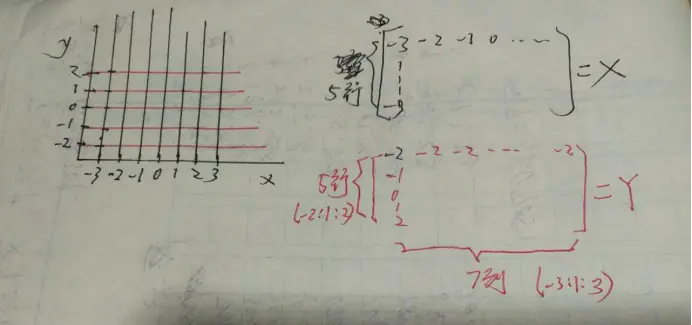 y
2
1
0
-1
-2
-3 -2 -1 0 1 2 3 x
-3 -2 -1 0 ......
5行
= X
-2 -2 -2 ... -2
-1
0
1
2
5行
(-2:1:2)
= Y
7列 (-3:1:3)